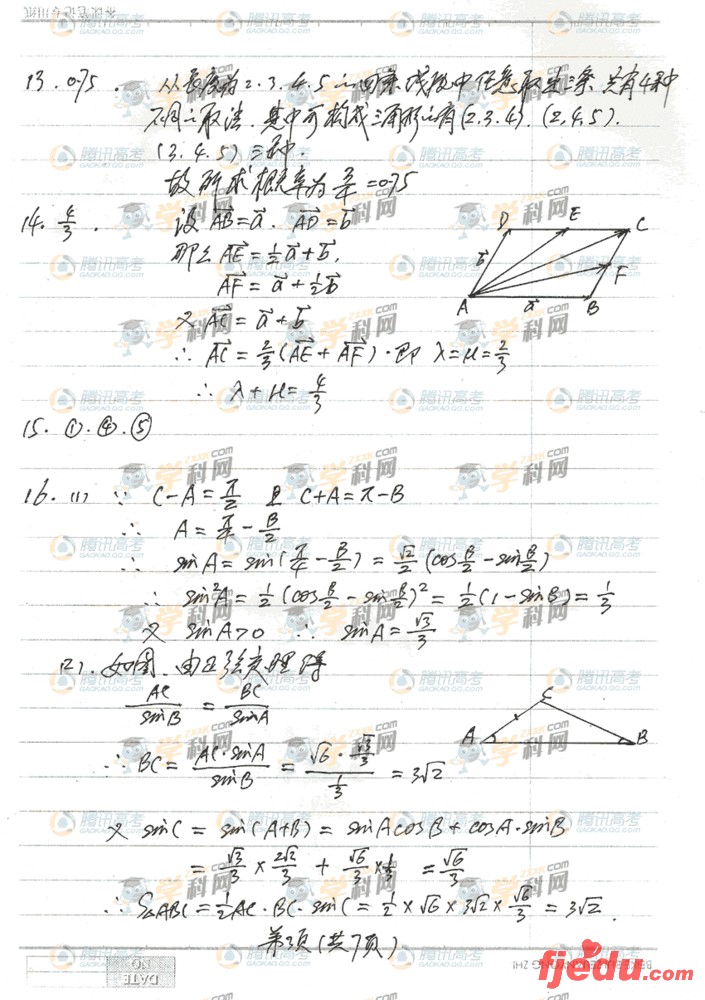 13. 0.75. 从长度为2.3.4.5之四条线段中任意取出三条共有4种
不同之取法.其中可构成三角形之有(2.3.4).(2,4,5).
(3.4.5)三种.
故所求概率为3/4=0.75
14. 4/3. 设AB→=a→. AD→=b→
那么AE→=1/2a→+b→,
AF→=a→+1/2b→
又AC→=a→+b→
∴ AC→=2/3(AE→+AF→)·即 λ=μ=2/3
∴ λ+μ=4/3
D E C
b→ F
A a→ B
15. ①.④.⑤
16. (1) ∵ C-A=π/2 且 C+A=π-B
∴ A=π/4-B/2
∴ sinA=sin(π/4-B/2)=√2/2(cosB/2-sinB/2)
∴ sin²A=1/2(cosB/2-sinB/2)²=1/2(1-sinB)=1/3
又 sinA>0 ∴ sinA=√3/3
(2).如图.由正弦定理得
AC/sinB=BC/sinA
C
A B
∴ BC=AC·sinA/sinB=√6·√3/3/1/3=3√2
又 sinC=sin(A+B)=sinAcosB+cosA·sinB
=√3/3×2√2/3+√6/3×1/3=√6/3
∴ S△ABC=1/2AC·BC·sinC=1/2×√6×3√2×√6/3=3√2.
第3页(共7页)
DATE
NO
fjedu.com
腾讯高考
GAOKAO.QQ.COM
学科网
ZXXK.COM